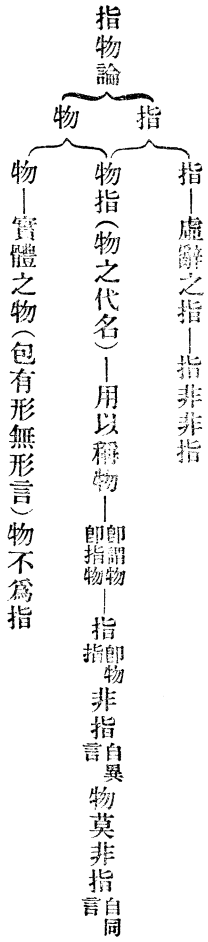 指物論
指
物
指—虛辭之指—指非非指
物指(物之代名)—用以稱物—卽謂物卽指物—指卽物指非指自異言物莫非指自同言
物—實體之物(包有形無形言)物不爲指